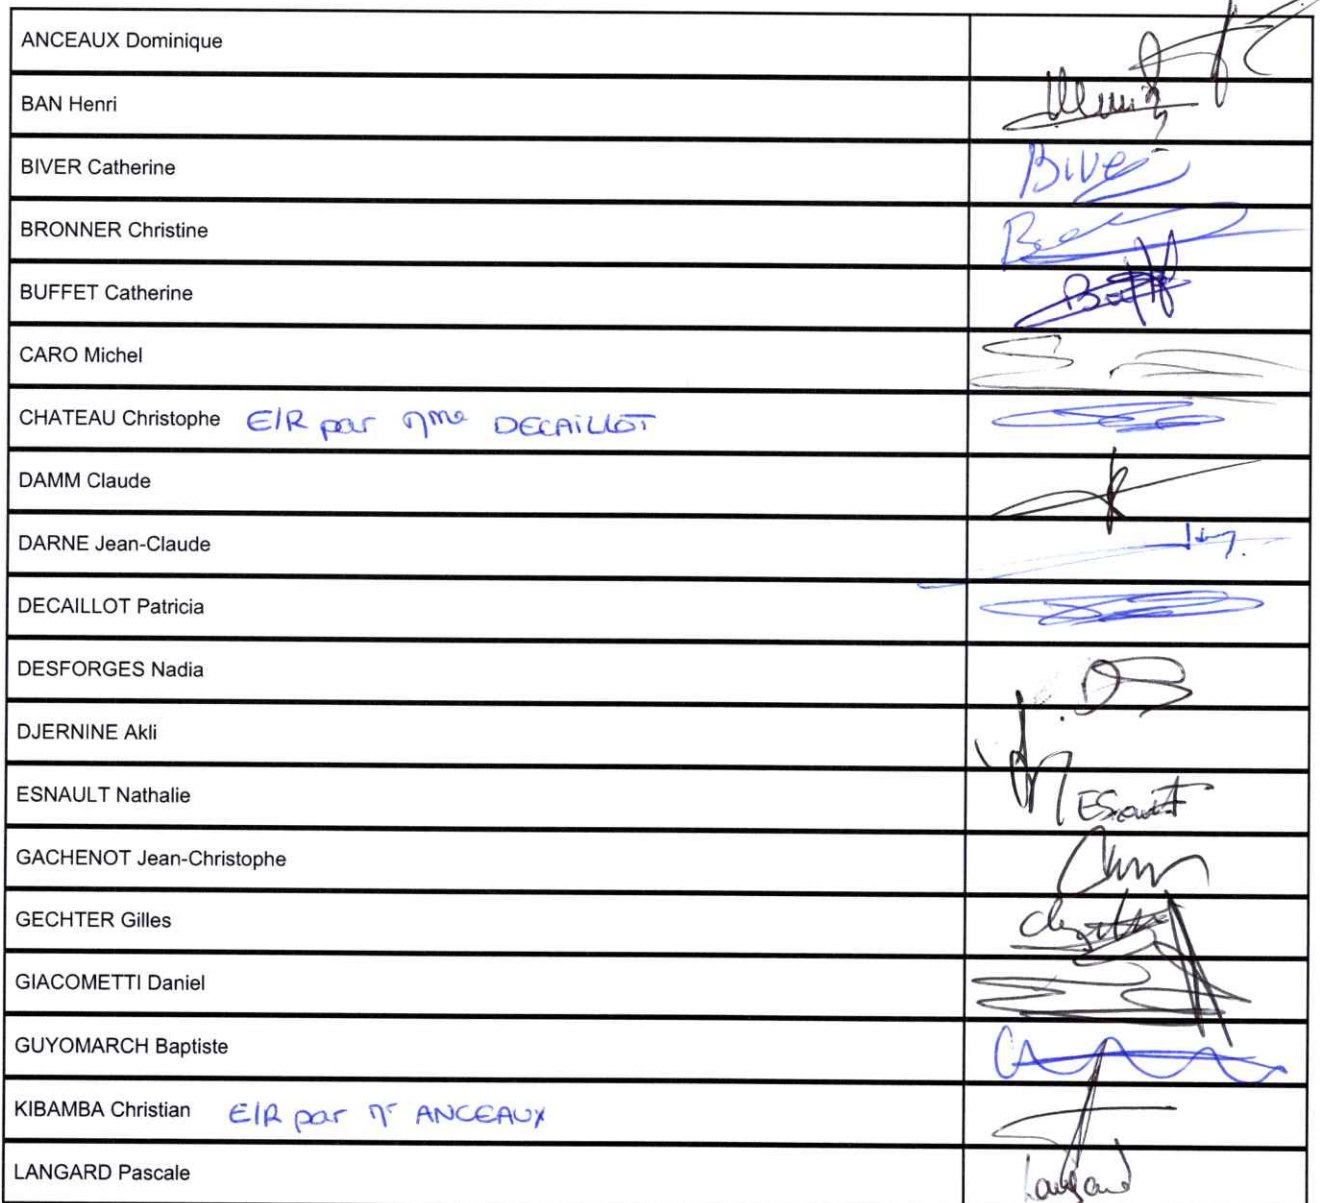 ANCEAUX Dominique
BAN Henri
BIVER Catherine Biver
BRONNER Christine
BUFFET Catherine
CARO Michel
CHATEAU Christophe E/R par Mme DECAILLOT
DAMM Claude
DARNE Jean-Claude
DECAILLOT Patricia
DESFORGES Nadia
DJERNINE Akli
ESNAULT Nathalie ESnault
GACHENOT Jean-Christophe
GECHTER Gilles
GIACOMETTI Daniel
GUYOMARCH Baptiste
KIBAMBA Christian E/R par Mr ANCEAUX
LANGARD Pascale Langard